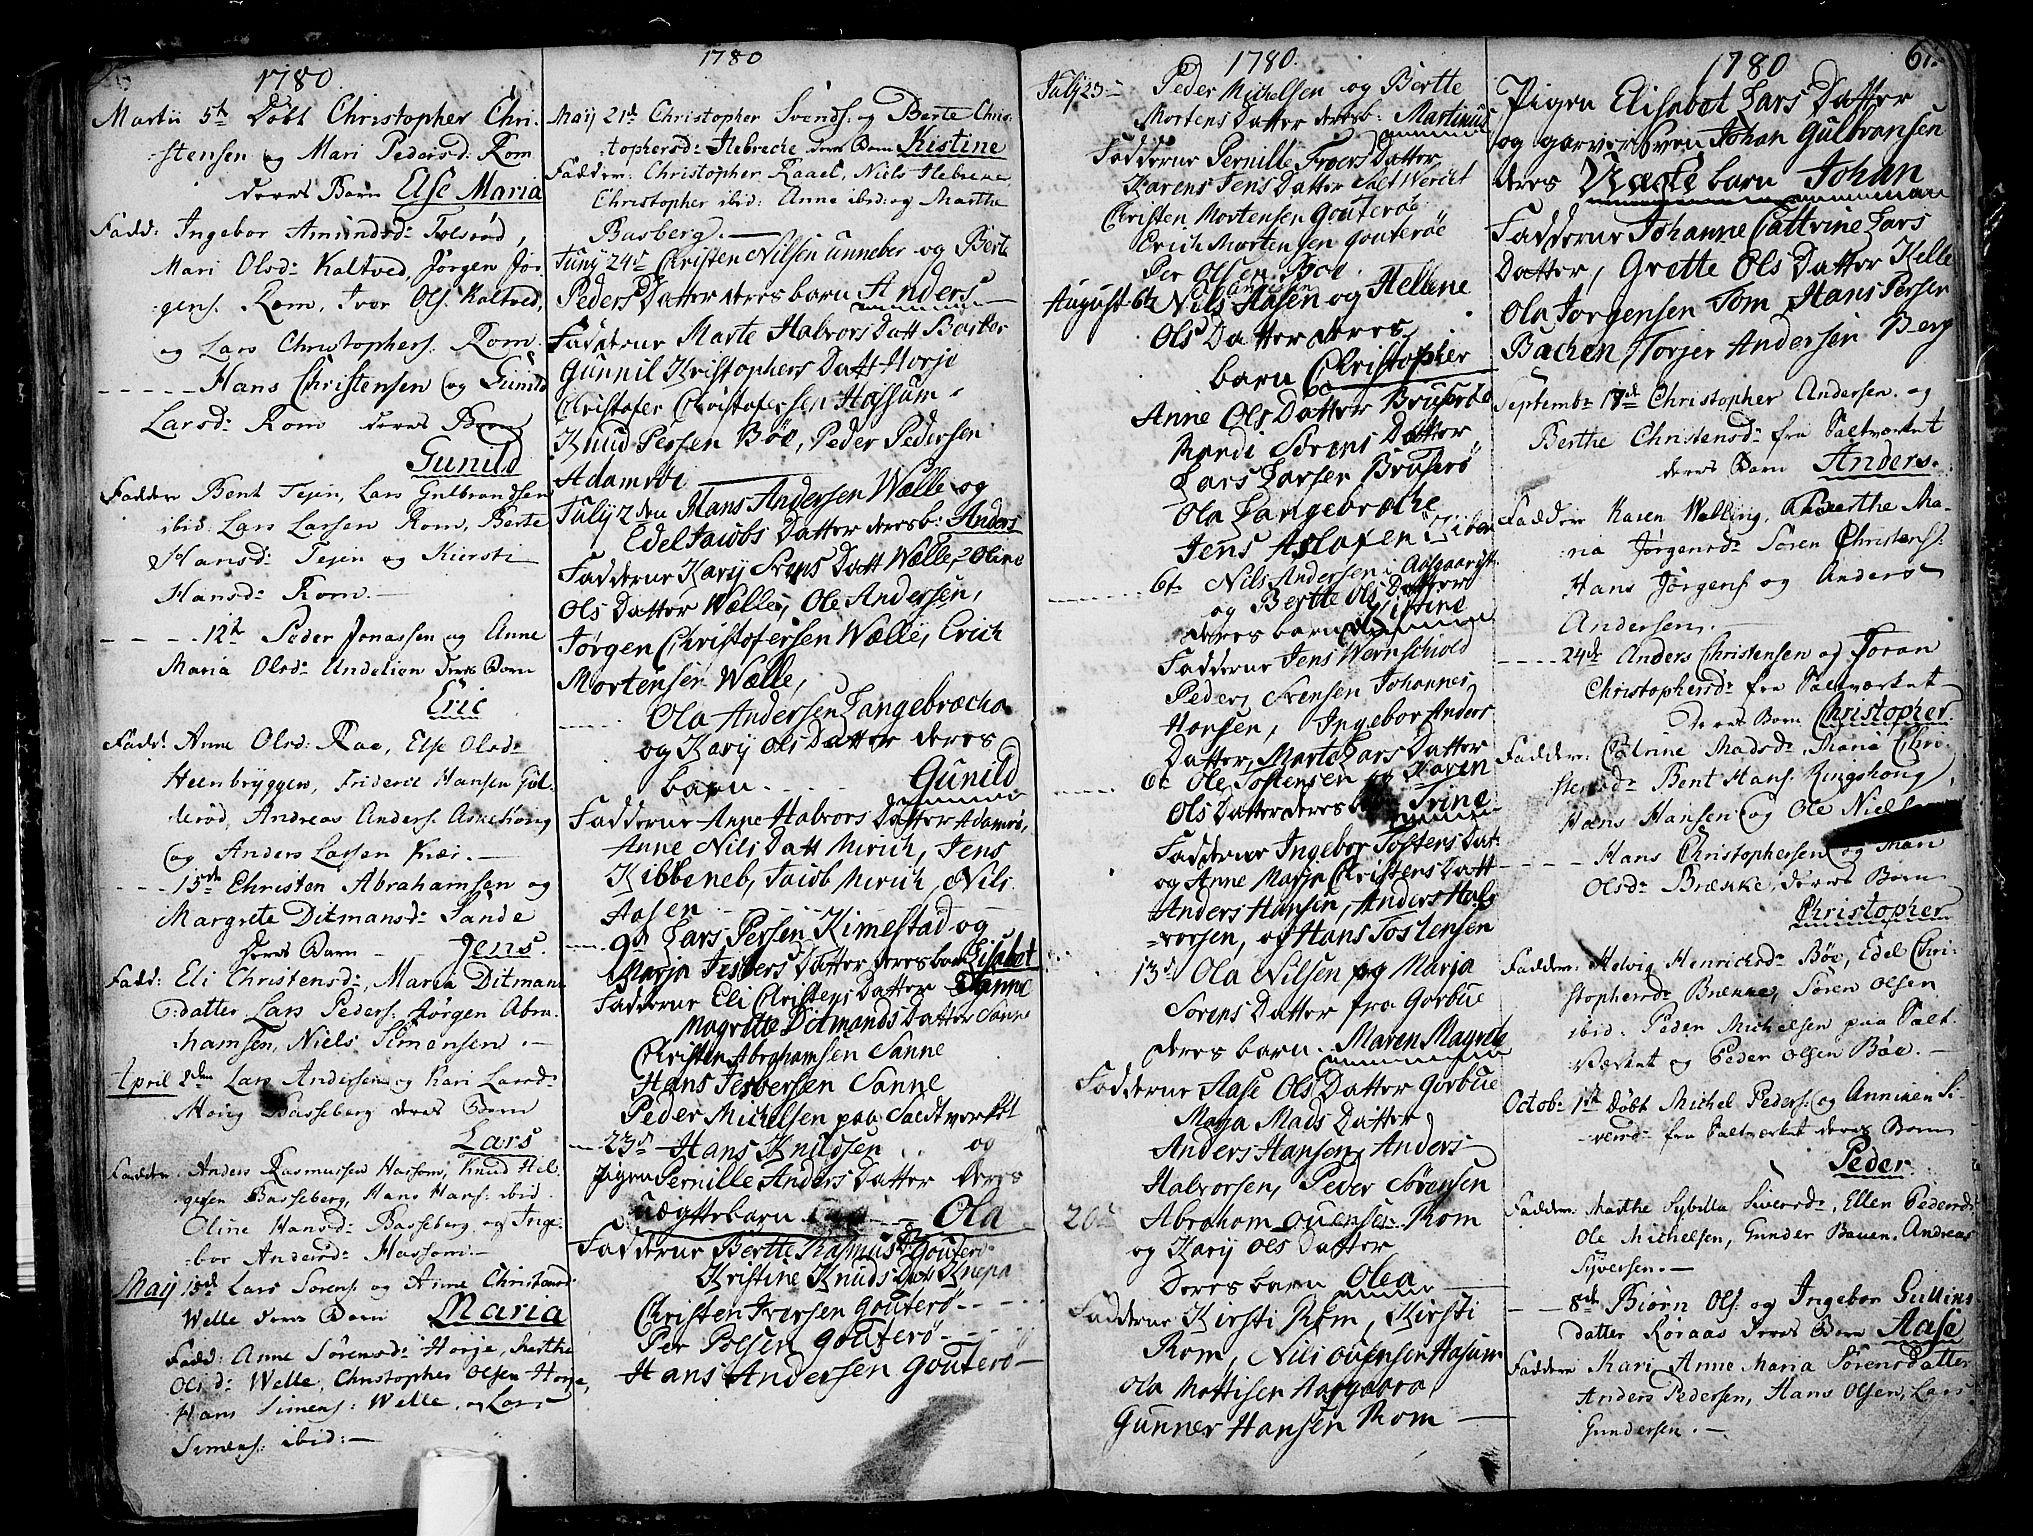 1780.
Martii 5th Döbt Christopher Chri-
stensen og Mari Pedersd: Rom
deres Barn Else Maria
Fadd: Ingebor Amundsd:
Mari Olsd: Kaltved, Jørgen Jør-
gens. Rom, Ivor Ols. Kaltved,
og Lars Christophers. Rom.
Hans Christensen og Gunild
Larsd: Rom deres Barn
Gunild
Faddere Bent Tejen, Lars Gulbrandsen
ibid. Lars Larsen Rom, Berte
Hansd: Tejen og Kiersti
Hansd: Rom.
12th Peder Jonassen og Anne
Maria Olsd: deres Barn
Eric
Fadd: Anne Olsd: Raa, Else Olsd:
Steenbryggen, Friderik Hansen Gul-
lerød, Andreas Anders. Askehoug
og Anders Larsen Kiær.
15de Christen Abrahamsen og
Margrete Ditmansd: Sande
deres Barn Jens.
Fadd: Eli Christensd: Maria Ditmans
datter Lars Peders. Jørgen Abra-
hamsen, Niels Simensen.
April 2den Lars Andersen og Kari Larsd:
Houg Basseberg deres Barn
Lars
Faddere Anders Rasmussen Hassom, Knud Hel-
gesen Basseberg, Hans Hans. ibid.
Oline Hansd: Basseberg, og Inge-
bor Andersd: Hassom.
May 15de Lars Sørens. og Anne Christensd:
Welle deres Barn Maria
Fadd: Anne Sörensd: Horje, Berthe
Olsd: Welle, Christopher Olsen Horje,
Hans Simens: Welle, og Lars
Simens: ibid:
1780
Maij 21de Christopher Svends: og Berte Chris-
tophersd: deres Barn Kistine
Fadder: Christopher Raael, Niels
Christopher ibid: Anne ibid: og Marthe
Basberg.
Junij 24de Christen Nilsen Unneber og Berte
Peders Datter deres barn Anders
Fadderne Marte Halvors Datt Basber
Gunnil Kristophers Datt Horje
Christofer Christofersen Hassum
Knud Pessen Böe, Peder Pedersen
Adamröe
Julij 2den Hans Andersen Wælle og
Edel Jacobs Datter deres b: Anders
Fadderne Karij Srens Datt Wælle, Oline
Ols Datter Wælle, Ole Andersen,
Jørgen Christofersen Wælle, Erich
Mortensen Wælle,
Ola Andersen Langebræche
og Karij Ols Datter deres
barn Gunild
Fadderne Anne Halvors Datter Adamrö,
Anne Nils Datt Mrich, Jens
Kibbeneb, Jacob Mrich, Nils
Aasen
9de Lars Persen Kimestad og
Marja Jesbers Datter deres barn Elisabet
Fadderne Eli Christens Datter Sanne
Magrette Ditmands Datter Sanne
Christen Abrahamsen Sanne
Hans Jesbersen Sanne
Peder Michelsen paa Saltverket
23de Hans Knudsen og
pigen Pernille Anders Datter deres
uægttebarn Ola
Fadderne Bertte Rasmus Gouterö
Kristine Knuds Dat
Christen Iversen Gouterö
Per Polsen Gouterö
Hans Andersen Gouterö
1780.
Julij 23 Peder Michelsen og Bertte
Mortens Datter deres b: Martinus
Fadderne Pernille Datter
Karens Jens Datter Salt Werket
Christen Mortensen Gouteröe
Erich Mortensen Gouteröe
Per Olsen Böe.
August 6te Nils Aasen og Hellene
Ols Datter deres
barn Christopher
Anne Ols Datter Bruserö
Randi Sörens Datter
Lars Larsen Bruserö
Ola Langebræche
Jens Aslafen
6te Nils Andersen i Aasgaarst.
og Bertte Ols Datter
deres barn Kistine
Fadderne Jens Wernschiold
Peder Srensen Johannes
Hansen, Ingebor Anders
Datter, Marte Lars Datter
6te Ole Tostensen og Karen
Ols Datter deres Trine
Fadderne Ingebor Tostens Dat:
og Anne Marja Christens Datt
Anders Hansen, Anders Hal-
vorsen, og Hans Tostensen
13de Ola Nilsen og Marja
Sörens Datter fra Gorbue
deres barn Maren Magrete
Fadderne Aase Ols Datter Gorbue
Maya Mads Datter
Anders Hansen, Anders
Halvorsen, Peder Sörensen
20de Abraham Rom
og Karij Ols Datter
deres barn Olea
Fadderne Kirsti Rom, Kirsti
Rom, Nils Hasum
Ola Mattisen
Gunner Hansen Rom
1780 61.
Pigen Elisabet Lars Datter
og garver Sven Johan Gulbransen
deres Uægte barn Johan
Fadderne Johanne Cattrine Lars
Datter, Grette Ols Datter Kelle
Ola Jorgensen Tom Hans Persen
Bachen, Torjer Andersen Berg
Septembr 17de Christopher Andersen og
Berthe Christensd: fra Saltværket
deres Barn Anders.
Faddere Karen Welling, Berthe Ma-
ria Jörgensd: Sören Christens.
Hans Jörgens. og Anders
Andersen.
24de Anders Christensen og Joran
Christophersd: fra Saltværket
deres Barn Christopher.
Faddere: Catrine Madsd: Maria Chri-
stensd: Bent Hans. Ringshoug,
Hans Hansen og Ole Niels
Hans Christophersen og Mari
Olsd: Brække, deres Barn
Christopher
Faddere: Helvig Henricksd: Böe, Edel Chri-
stophersd: Brække, Sören Olsen
ibid. Peder Michelsen paa Salt-
værket og Peder Olsen Böe.
Octob: 1ste Döbt Michel Peders: og Anniken Si-
versd: fra Saltværket deres Barn
Peder.
Faddere: Marthe Sybilla Siversd: Ellen Pedersd:
Ole Michelsen, Gunder Bauen. Andreas
Syversen.
8de Biørn Ols. og Ingebor Gullins
datter Röraas deres Barn Aase
Faddere Kari Anne Maria Sörensdatter
Anders Pedersen, Hans Olsen, Lars
Gundersen.